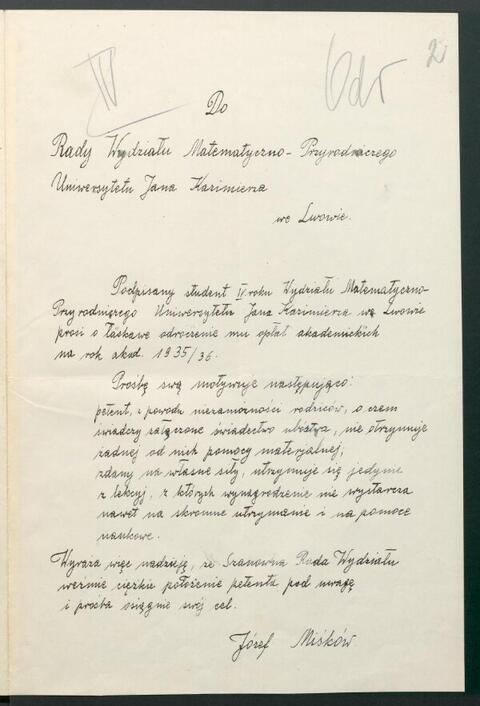 IV
Odr
2
Do
Rady Wydziału Matematyczno-Przyrodniczego
Uniwersytetu Jana Kazimierza
we Lwowie.
Podpisany student IV. roku Wydziału Matematyczno-
Przyrodniczego Uniwersytetu Jana Kazimierza we Lwowie
prosi o łaskawe odroczenie mu opłat akademickich
na rok akad. 1935/36.
Prośbę swą motywuje następująco:
petent, z powodu niezamożności rodziców, o czem
świadczy załączone świadectwo ubóstwa, nie otrzymuje
żadnej od nich pomocy materjalnej;
zdany na własne siły, utrzymuje się jedynie
z lekcyj, z których wynagrodzenie nie wystarcza
nawet na skromne utrzymanie i na pomoce
naukowe.
Wyraża więc nadzieję, że Szanowna Rada Wydziału
weźmie ciężkie położenie petenta pod uwagę
i prośba osiągnie swój cel.
Józef Miśków